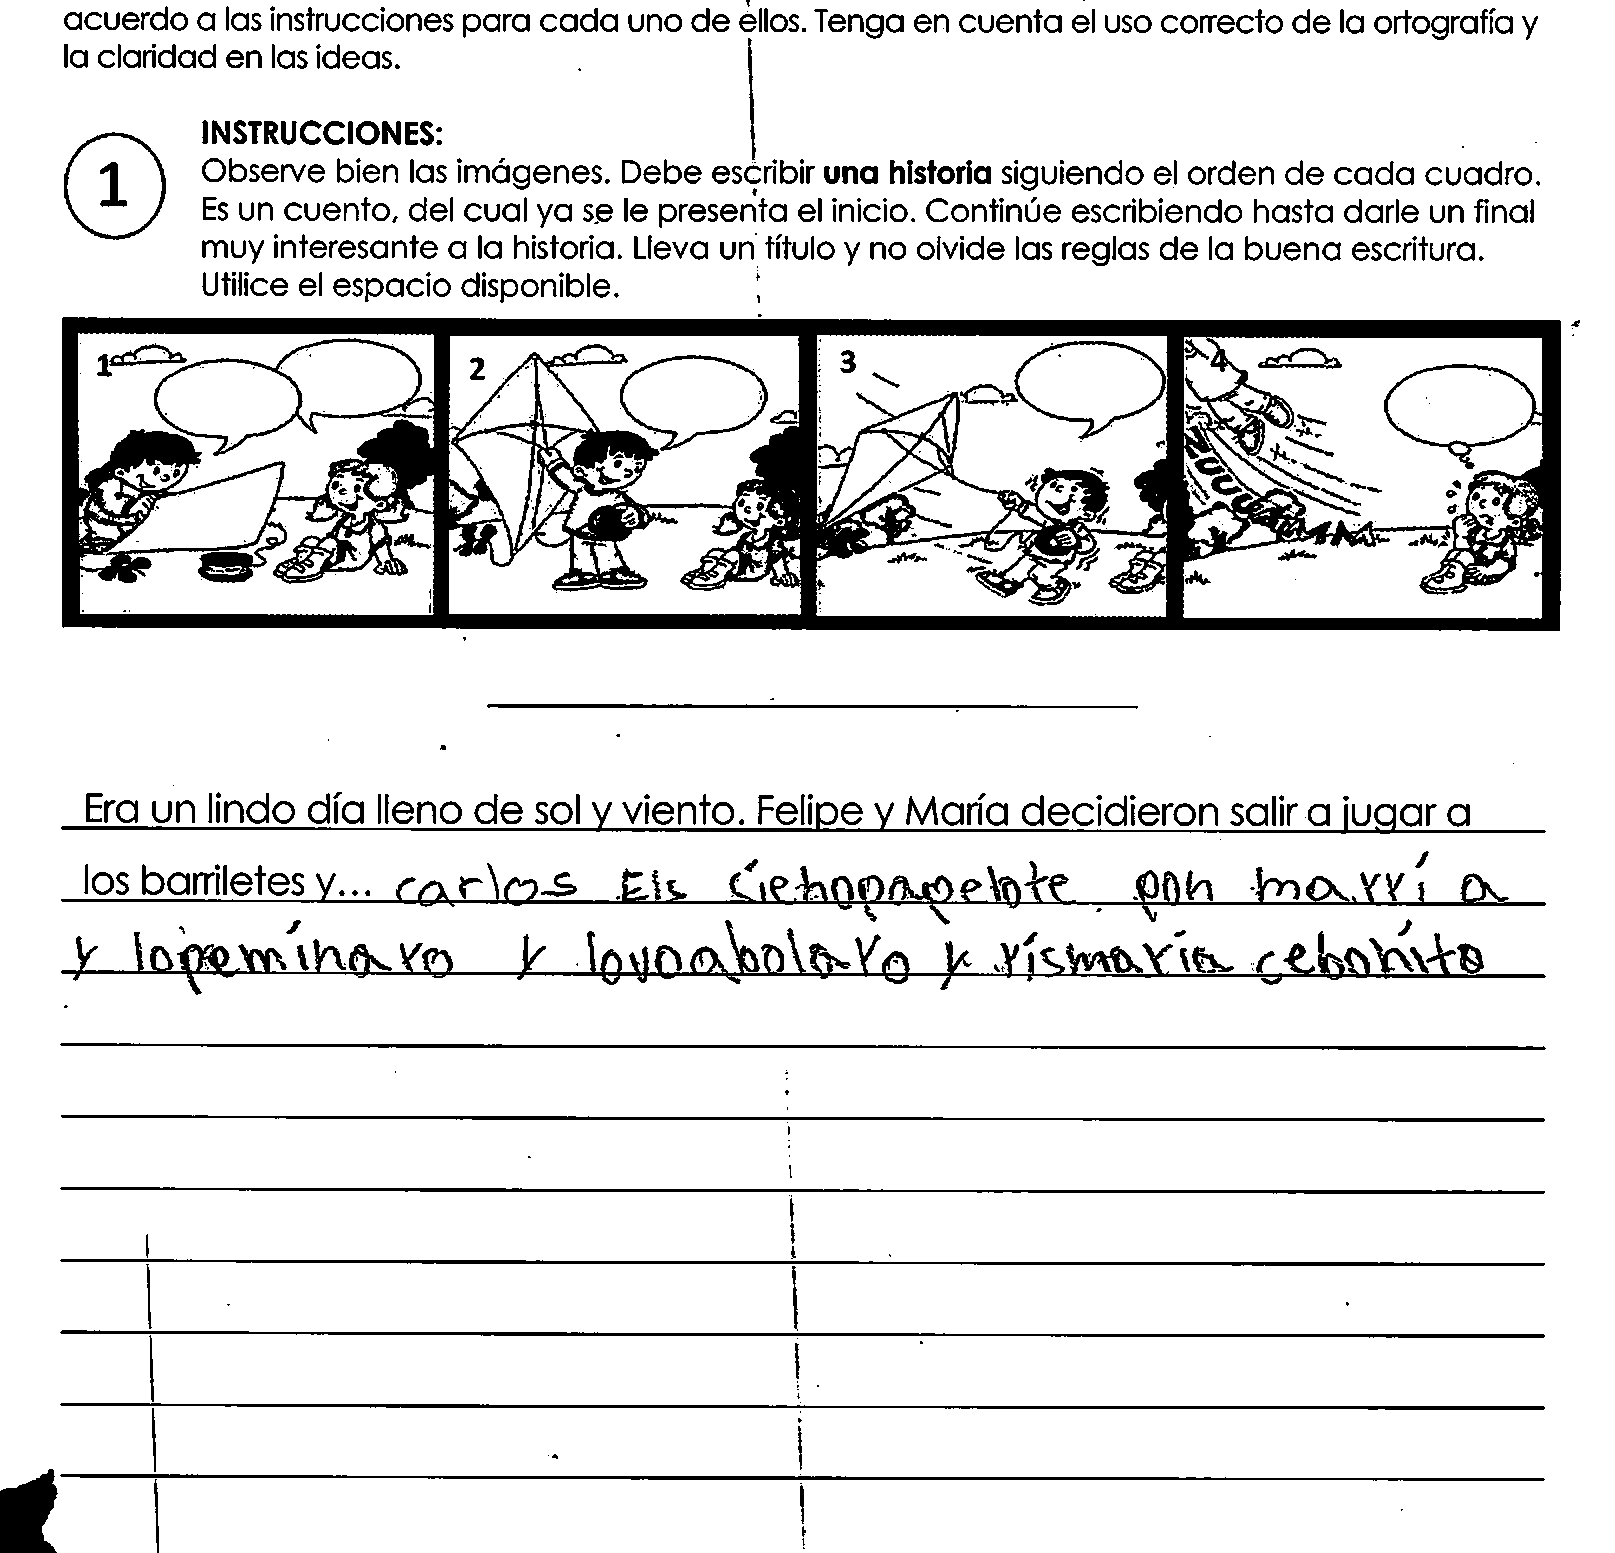 acuerdo a las instrucciones para cada uno de ellos. Tenga en cuenta el uso correcto de la ortografía y
la claridad en las ideas.
1
INSTRUCCIONES:
Observe bien las imágenes. Debe escribir una historia siguiendo el orden de cada cuadro.
Es un cuento, del cual ya se le presenta el inicio. Continúe escribiendo hasta darle un final
muy interesante a la historia. Lleva un título y no olvide las reglas de la buena escritura.
Utilice el espacio disponible.
1 2 3 4
Era un lindo día lleno de sol y viento. Felipe y María decidieron salir a jugar a
los barriletes y... carlos Els marrí a
y lopeminaro y y rismaria cebonito